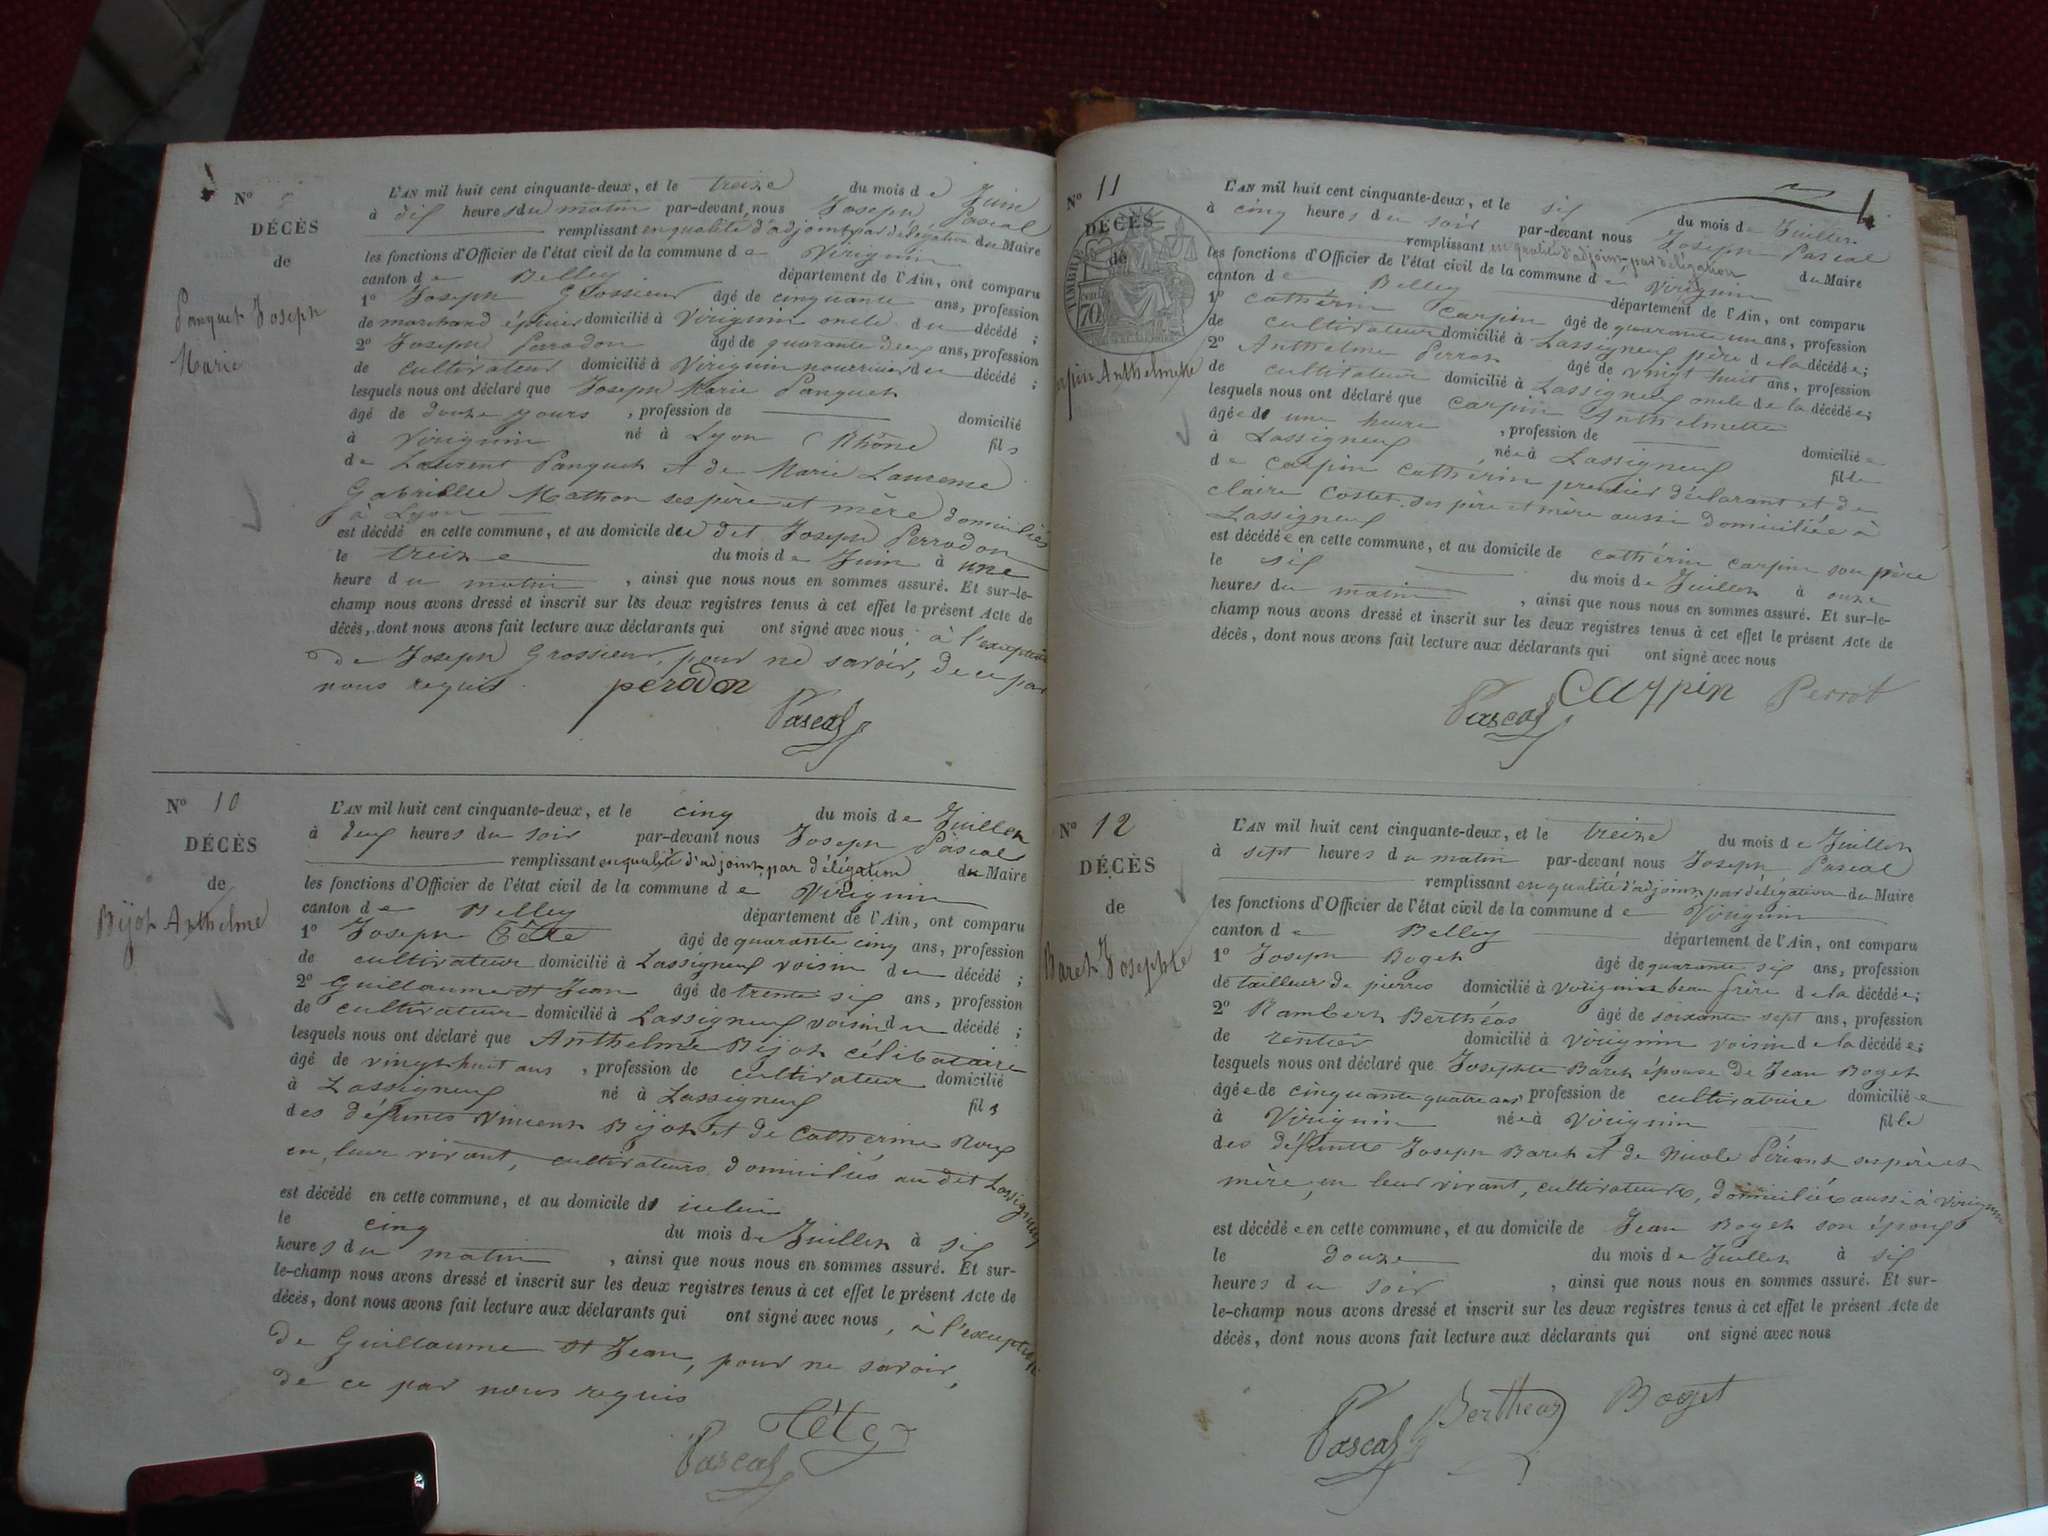 N°
DÉCÈS
de
Panquet Joseph
Marie
L'AN mil huit cent cinquante-deux, et le treize du mois de Juin
à dix heures du matin par-devant nous Joseph Pascal
remplissant en qualité d'adjoint par délégation du Maire
les fonctions d'Officier de l'état civil de la commune de Virignin
canton de Belley département de l'Ain, ont comparu
1° Joseph Grossieur âgé de cinquante ans, profession
de marchand épicier domicilié à Virignin oncle du décédé ;
2° Joseph Perradon âgé de quarante deux ans, profession
de cultivateur domicilié à Virignin nourricier du décédé ;
lesquels nous ont déclaré que Joseph Marie Panquet
âgé de douze jours , profession de domicilié
à Virignin né à Lyon (Rhône) fils
de Laurent Panquet et de Marie Laurence
Gabrielle Mathon ses père et mère domiciliés
à Lyon
est décédé en cette commune, et au domicile du dit Joseph Perradon
le treize du mois de Juin à une
heure du matin , ainsi que nous nous en sommes assuré. Et sur-le-
champ nous avons dressé et inscrit sur les deux registres tenus à cet effet le présent Acte de
décès, dont nous avons fait lecture aux déclarants qui ont signé avec nous à l'exception
de Joseph Grossieur, pour ne savoir, de ce par
nous requis. peradon
Pascal
N° 10
DÉCÈS
de
Bijot Anthelme
L'AN mil huit cent cinquante-deux, et le cinq du mois de Juillet
à deux heures du soir par-devant nous Joseph Pascal
remplissant en qualité d'adjoint par délégation du Maire
les fonctions d'Officier de l'état civil de la commune de Virignin
canton de Belley département de l'Ain, ont comparu
1° Joseph Tête âgé de quarante cinq ans, profession
de cultivateur domicilié à Lassigneux voisin du décédé ;
2° Guillaume St Jean âgé de trente six ans, profession
de cultivateur domicilié à Lassigneux voisin du décédé ;
lesquels nous ont déclaré que Anthelme Bijot célibataire
âgé de vingt huit ans , profession de cultivateur domicilié
à Lassigneux né à Lassigneux fils
des défunts Vincent Bijot et de Catherine Roux
en leur vivant, cultivateurs domiciliés au dit Lassigneux
est décédé en cette commune, et au domicile de icelui
le cinq du mois de Juillet à six
heures du matin , ainsi que nous nous en sommes assuré. Et sur-
le-champ nous avons dressé et inscrit sur les deux registres tenus à cet effet le présent Acte de
décès, dont nous avons fait lecture aux déclarants qui ont signé avec nous, à l'exception
de Guillaume St Jean, pour ne savoir,
de ce par nous requis
Tête
Pascal
N° 11
DÉCÈS
de
TIMBRE
70
Carpin Anthelmette
L'AN mil huit cent cinquante-deux, et le six du mois de Juillet
à cinq heures du soir par-devant nous Joseph Pascal
remplissant en qualité d'adjoint par délégation du Maire
les fonctions d'Officier de l'état civil de la commune de Virignin
canton de Belley département de l'Ain, ont comparu
1° Cathérin Carpin âgé de quarante un ans, profession
de cultivateur domicilié à Lassigneux père de la décédée ;
2° Anthelme Perrot âgé de vingt huit ans, profession
de cultivateur domicilié à Lassigneux oncle de la décédée ;
lesquels nous ont déclaré que Carpin Anthelmette
âgée de une heure , profession de domiciliée
à Lassigneux née à Lassigneux fille
de Carpin Cathérin premier déclarant et de
Claire Costet ses père et mère aussi domiciliée à
Lassigneux
est décédée en cette commune, et au domicile de Cathérin Carpin son père
le six du mois de Juillet à onze
heures du matin , ainsi que nous nous en sommes assuré. Et sur-le-
champ nous avons dressé et inscrit sur les deux registres tenus à cet effet le présent Acte de
décès, dont nous avons fait lecture aux déclarants qui ont signé avec nous
Pascal Carpin Perrot
N° 12
DÉCÈS
de
Baret Josephte
L'AN mil huit cent cinquante-deux, et le treize du mois de Juillet
à sept heures du matin par-devant nous Joseph Pascal
remplissant en qualité d'adjoint par délégation du Maire
les fonctions d'Officier de l'état civil de la commune de Virignin
canton de Belley département de l'Ain, ont comparu
1° Joseph Boget âgé de quarante six ans, profession
de tailleur de pierres domicilié à Virignin beau frère de la décédée ;
2° Rambert Berthéas âgé de soixante sept ans, profession
de rentier domicilié à Virignin voisin de la décédée ;
lesquels nous ont déclaré que Josephte Baret épouse de Jean Boget
âgée de cinquante quatre ans profession de cultivatrice domiciliée
à Virignin née à Virignin fille
des défunts Joseph Baret et de Nicole ses père et
mère, en leur vivant, cultivateurs, domiciliés aussi à Virignin
est décédée en cette commune, et au domicile de Jean Boget son époux
le douze du mois de Juillet à six
heures du soir , ainsi que nous nous en sommes assuré. Et sur-
le-champ nous avons dressé et inscrit sur les deux registres tenus à cet effet le présent Acte de
décès, dont nous avons fait lecture aux déclarants qui ont signé avec nous
Pascal Bertheas Boget